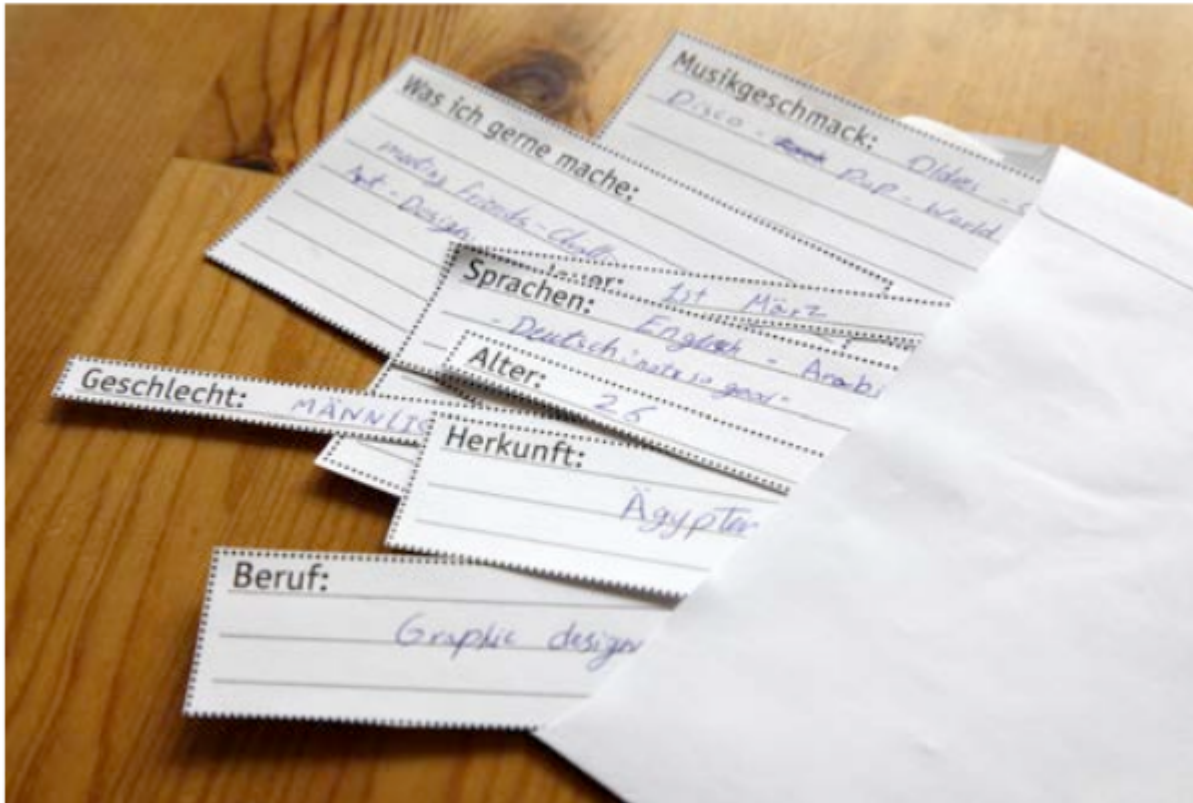 Musikgeschmack: Oldies -
Disco - Pop - World
Was ich gerne mache:
meeting friends -
Art - Design
1st März
Sprachen: English - Arabi
- Deutsch not so good -
Alter:
26
Geschlecht: MÄNNLIC
Herkunft:
Ägypten
Beruf:
Graphic design